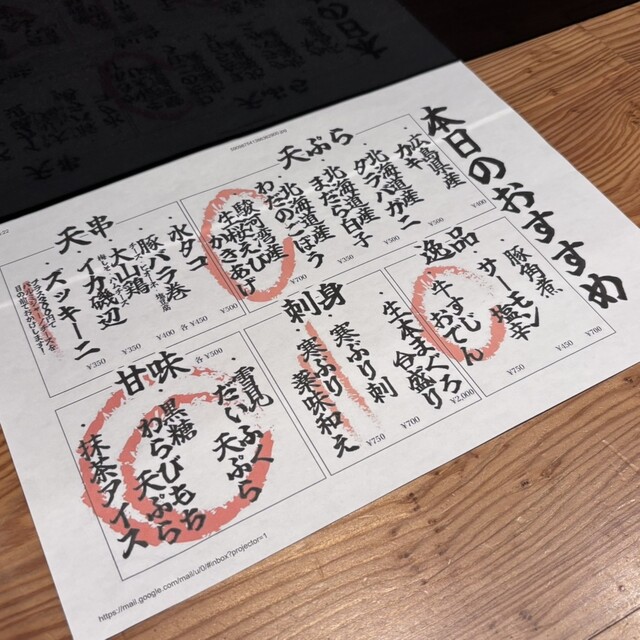 本日のおすすめ
天ぷら
・広島県産
カキ
¥400
・北海道産
タラバガニ
¥500
・北海道産
まだら白子
¥350
・北海道
ごぼう
生桜えび
かきあげ
¥700
天串
・水タコ
¥500
・豚バラ巻
各¥450
・大山鶏
¥400
・イカ磯辺
¥350
・ズッキーニ
¥350
逸品
・豚角煮
¥700
・サーモン塩辛
¥450
・牛すじおでん
¥750
刺身
・生本まぐろ
台盛り
¥2,000
・寒ぶり刺
¥700
・寒ぶり薬味和え
¥750
甘味
各¥500
・雪見だいふく
天ぷら
・黒糖わらびもち
天ぷら
・抹茶アイス
https://mail.google.com/mail/u/0/#inbox?projector=1